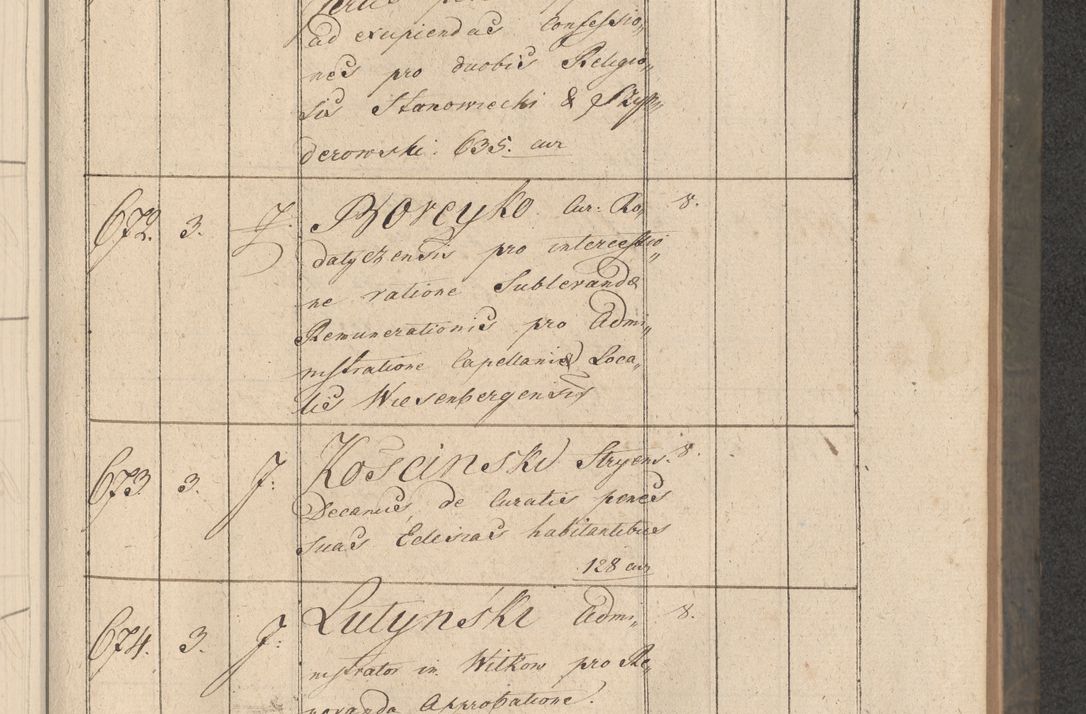 ad excipiendas Confessio„
nes pro duobis Religio„
sis Stanowiecki &
derowski. 635. cur
672. 3. J. Boreyko Cur. Ro„ 8.
datyczensis pro intercessio„
ne ratione Sublevandæ
Remunerationis pro Admi„
nistratione Capellaniæ Loca„
lis Wiesenbergensis
673 3. J. Kościnski Stryens. 8.
Decanus, de Curatis penes
suas Eclesias habitantibus
128 cur
674. 3. J. Lutyński Admi„ 8.
nistrator in Witkow pro Re„
novanda Approbatione.